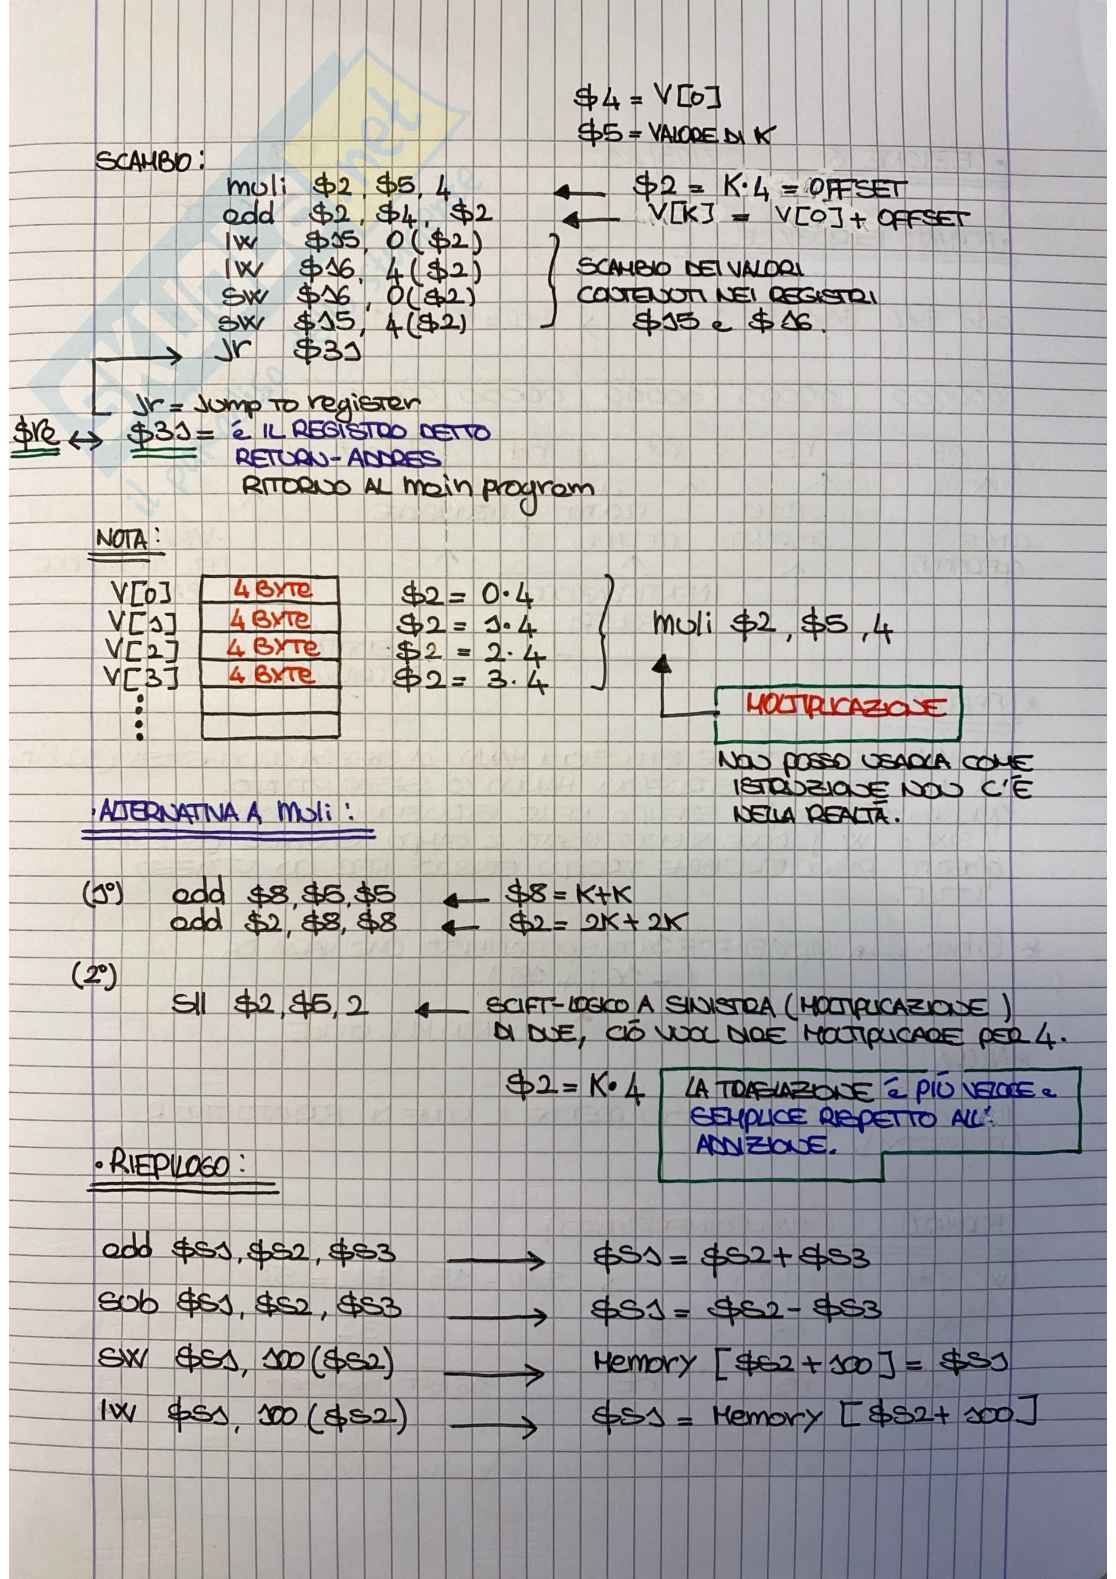 $4 = V[0]
$5 = VALORE DI K
SCAMBIO:
muli $2, $5, 4 ← $2 = K·4 = OFFSET
add $2, $4, $2 ← V[K] = V[0] + OFFSET
lw $15, 0($2)
lw $16, 4($2) SCAMBIO DEI VALORI
sw $16, 0($2) CONTENUTI NEI REGISTRI
sw $15, 4($2) $15 e $16.
Jr $31
Jr = Jump TO regISTER
$ra ↔ $31 = é IL REGISTRO DETTO
RETURN-ADDRES
RITORNO AL main program
NOTA:
V[0] 4 BYTE $2 = 0·4
V[1] 4 BYTE $2 = 1·4 muli $2, $5, 4
V[2] 4 BYTE $2 = 2·4
V[3] 4 BYTE $2 = 3·4
MOLTIPLICAZIONE
NON POSSO USARLA COME
ISTRUZIONE NON C'È
NELLA REALTÀ.
·ALTERNATIVA A muli:
(1°) add $8, $5, $5 ← $8 = K+K
add $2, $8, $8 ← $2 = 2K + 2K
(2°)
sll $2, $5, 2 ← SCIFT-LOGICO A SINISTRA (MOLTIPLICAZIONE)
DI DUE, CIÒ VUOL DIRE MOLTIPLICARE PER 4.
$2 = K·4 LA TRASLAZIONE é PIÙ VELOCE e
SEMPLICE RISPETTO ALL'
ADDIZIONE.
·RIEPILOGO:
add $S1, $S2, $S3 → $S1 = $S2 + $S3
sub $S1, $S2, $S3 → $S1 = $S2 - $S3
sw $S1, 100($S2) → Memory [$S2 + 100] = $S1
lw $S1, 100($S2) → $S1 = Memory [$S2 + 100]